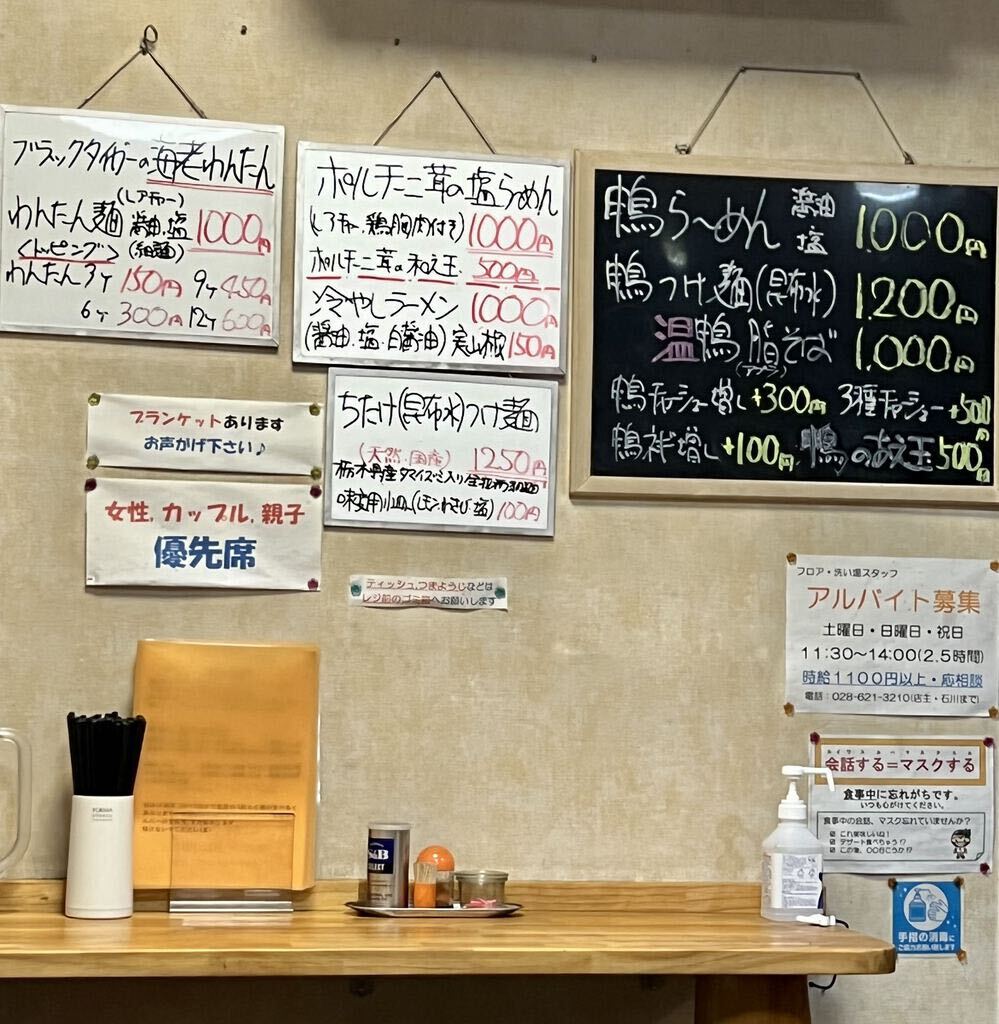 ブラックタイガーの海老わんたん
(レアチャー)
わんたん麺 醤油.塩 1000円
<トッピング> (細麺)
わんたん3ヶ 150円 9ヶ 450円
6ヶ 300円 12ヶ 600円
ポルチーニ茸の塩らーめん
(レアチャー.鶏胸肉付き) 1000円
ポルチーニ茸の和え玉. 500円
冷やしラーメン 1000円
(醤油.塩.白醤油) 実山椒 150円
ちたけ(昆布水)つけ麺
(天然.国産) 1250円
味変用小皿(レモン.わさび.塩) 100円
鴨ら〜めん 醤油 塩 1.000円
鴨つけ麺(昆布水) 1.200円
温鴨脂そば 1.000円
(アブラ)
鴨チャーシュー増し +300円 3種チャーシュー +500円
鴨ネギ増し +100円 鴨のあえ玉 500円
ブランケットあります
お声がけ下さい♪
女性.カップル.親子
優先席
ティッシュ、つまようじなどは
レジ前のゴミ箱へお願いします
フロア・洗い場スタッフ
アルバイト募集
土曜日・日曜日・祝日
11:30〜14:00(2.5時間)
時給1100円以上・応相談
電話:028-621-3210(店主・石川まで)
会話する=マスクする
食事中に忘れがちです。
いつも心がけてください。
食事中の会話、マスク忘れていませんか?
これ美味しいね!
デザート食べちゃう!?
この後、〇〇行こうか!?
S&B
SELECT
手指の消毒に
ご協力お願い致します